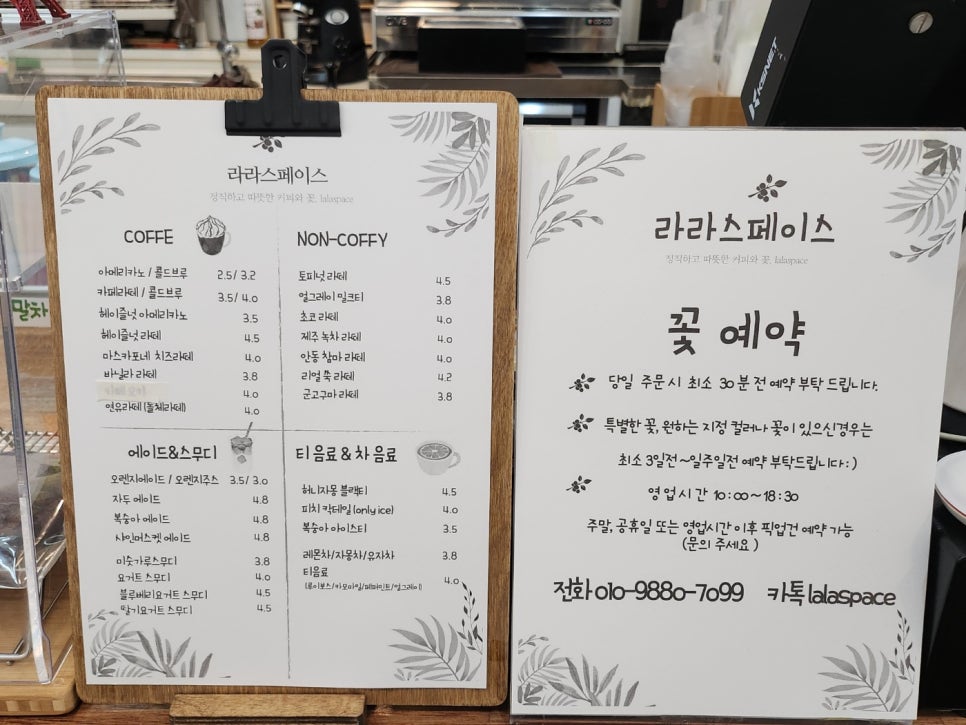 라라스페이스
정직하고 따뜻한 커피와 꽃, lalaspace
COFFE
아메리카노 / 콜드브루 2.5/ 3.2
카페라떼 / 콜드브루 3.5/ 4.0
헤이즐넛 아메리카노 3.5
헤이즐넛 라떼 4.5
마스카포네 치즈라떼 4.0
바닐라 라떼 3.8
카페 모카 4.0
연유라떼 (돌체라떼) 4.0
NON-COFFY
토피넛 라떼 4.5
얼그레이 밀크티 3.8
초코 라떼 4.0
제주 녹차 라떼 4.0
안동 참마 라떼 4.0
리얼 쑥 라떼 4.2
군고구마 라떼 3.8
에이드&스무디
오렌지에이드 / 오렌지주스 3.5/ 3.0
자두 에이드 4.8
복숭아 에이드 4.8
샤인머스켓 에이드 4.8
미숫가루스무디 3.8
요거트 스무디 4.0
블루베리요거트 스무디 4.5
딸기요거트 스무디 4.5
티 음료 & 차 음료
허니자몽 블랙티 4.5
피치 칵테일 (only ice) 4.0
복숭아 아이스티 3.5
레몬차/자몽차/유자차 3.8
티음료 4.0
(루이보스/카모마일/페퍼민트/얼그레이)
라라스페이스
정직하고 따뜻한 커피와 꽃, lalaspace
꽃 예약
당일 주문시 최소 30분 전 예약 부탁 드립니다.
특별한 꽃, 원하는 지정 컬러나 꽃이 있으신경우는
최소 3일전 ~일주일전 예약 부탁드립니다 : )
영업시간 10:00~18:30
주말, 공휴일 또는 영업시간 이후 픽업건 예약 가능
(문의 주세요 )
전화 010-9880-7099 카톡 lalaspace
말차
KSNET